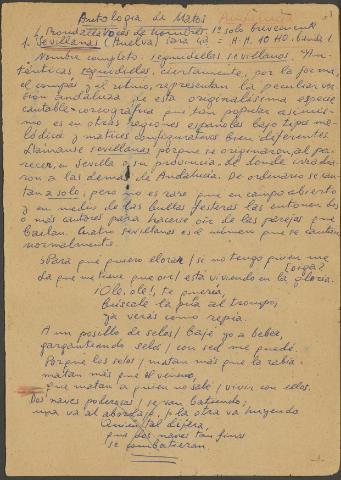 Antología de Matos
1. Sevillanas (Huelva) cara
Nombre completo, seguidillas sevillanas. Au-
ténticas seguidillas, ciertamente, por la forma,
el compás y el ritmo, representan la peculiar ver-
sión andaluza de esta originalísima especie
cantable-coreográfica que tan popular asimis-
mo es en otras regiones españolas bajo tipos me-
lódicos y matices configurativos bien diferentes.
Llámanse sevillanas porque se originaron, al pa-
recer, en Sevilla o su provincia, de donde irradia-
ron a las demás de Andalucía. De ordinario se can-
tan a solo, pero no es raro que en campo abierto
y en medio de las bullas festeras las entonen dos
o más cantores para hacerse oír de las parejas que
bailan. Cuatro sevillanas es el número que se cantan
normalmente.
¿Para qué quiero llorar / si no tengo quien me
[oiga?
que me tiene que oír / está viviendo en la gloria.
¡Olé, olé!, te quería,
búscale la púa al trompo,
ya verás como repía.
A un posillo de selos / bajé yo a beber,
garganteando selos / con sed me quedé.
Porque los selos / matan más que la rabia
matan más que el veneno,
que matan a quien no sabe / vivir con ellos.
Dos naves poderosas / se van batiendo;
una va al abordaje / y la otra va huyendo
que dos naves tan finas
se combatieran.